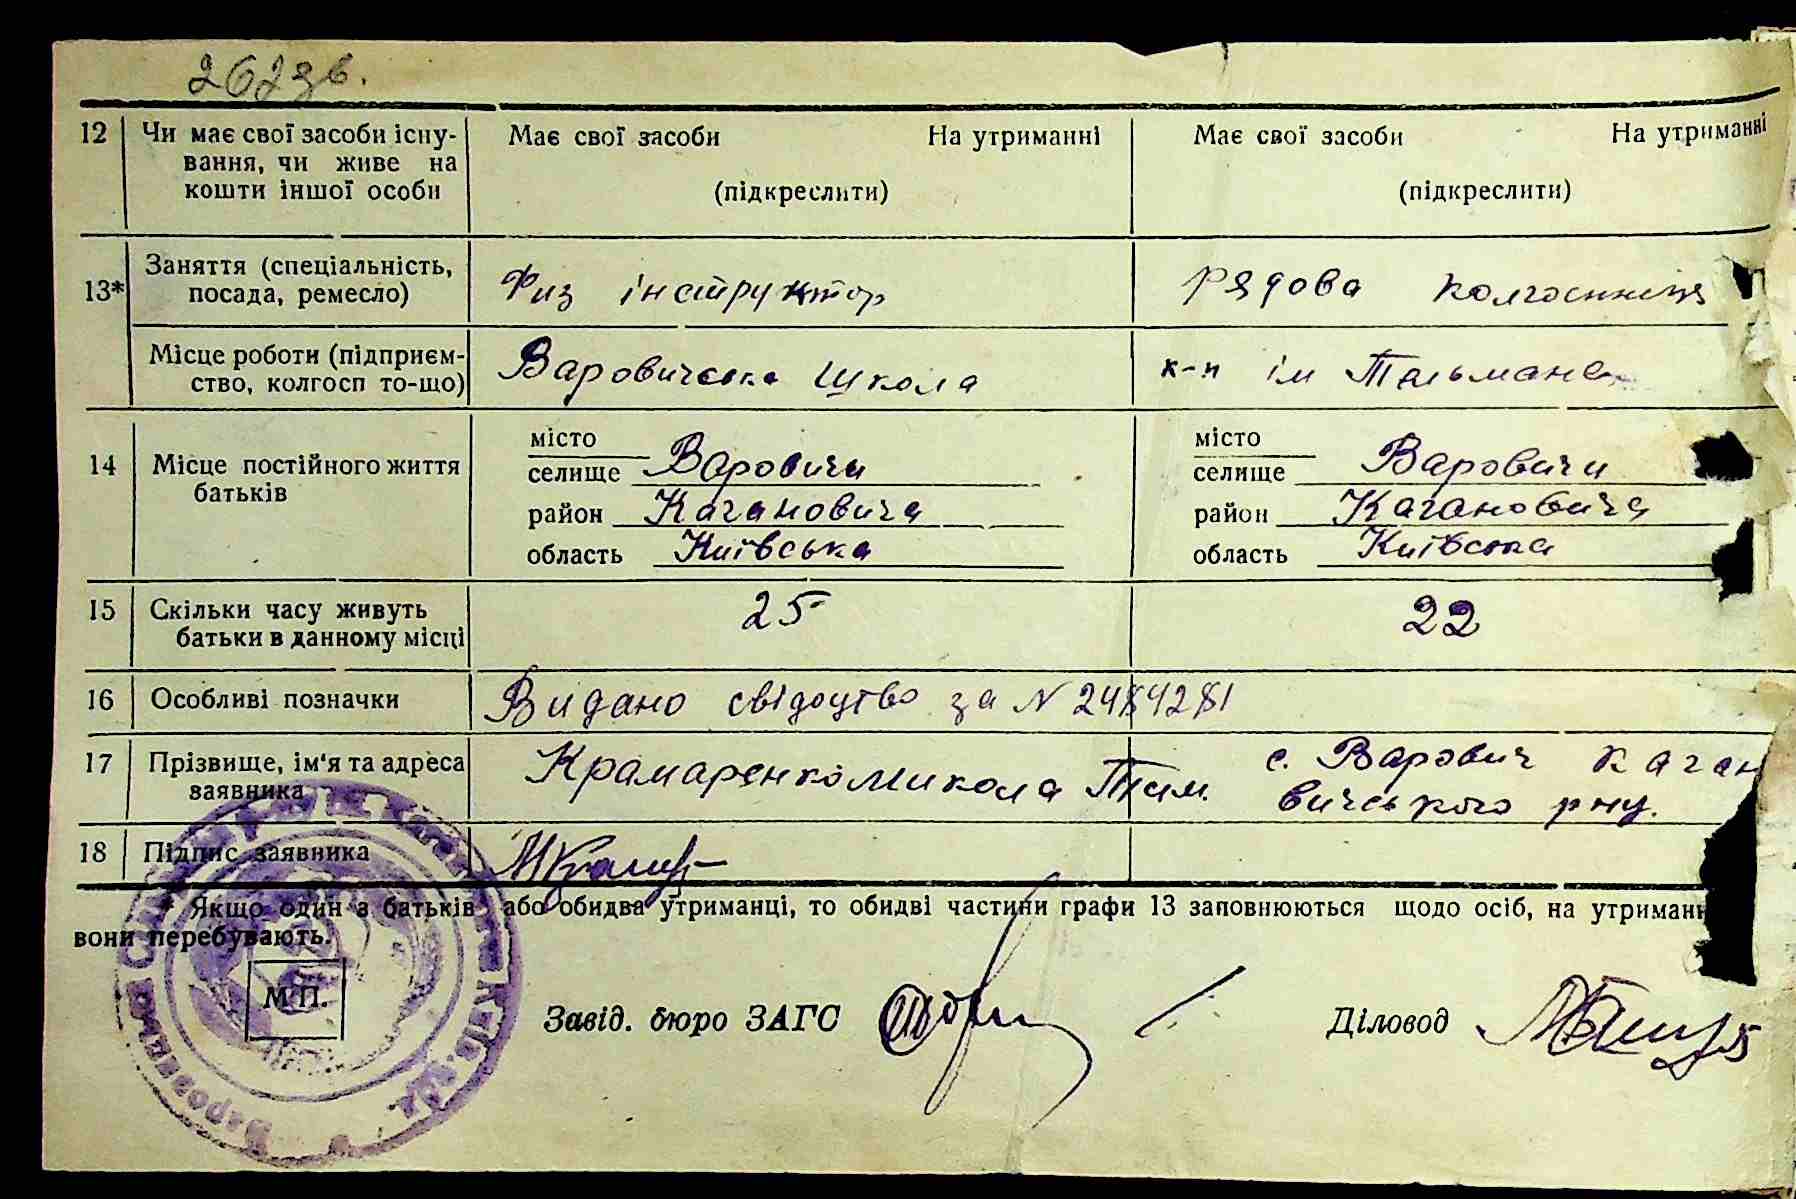 262 зв.
12 Чи має свої засоби існу- Має свої засоби На утриманні Має свої засоби На утриманні
вання, чи живе на
кошти іншої особи (підкреслити) (підкреслити)
13* Заняття (спеціальність, Физ інструктор рядова колгоспниця
посада, ремесло)
Місце роботи (підприєм- Варовичська школа к-п ім Тельмана
ство, колгосп то-що)
місто місто
14 Місце постійного життя селище Варовичи селище Варовичи
батьків
район Кагановича район Кагановича
область Київська область Київська
15 Скільки часу живуть 25 22
батьки в данному місці
16 Особливі позначки Видано свідоцтво за N 2484281
17 Прізвище, ім'я та адреса Крамаренко Микола Тим. с. Варович Каган
заявника вичського рну.
18 Підпис заявника
* Якщо один з батьків або обидва утриманці, то обидві частини графи 13 заповнюються щодо осіб, на утриманн
вони перебувають.
М.П.
Завід. бюро ЗАГС Діловод